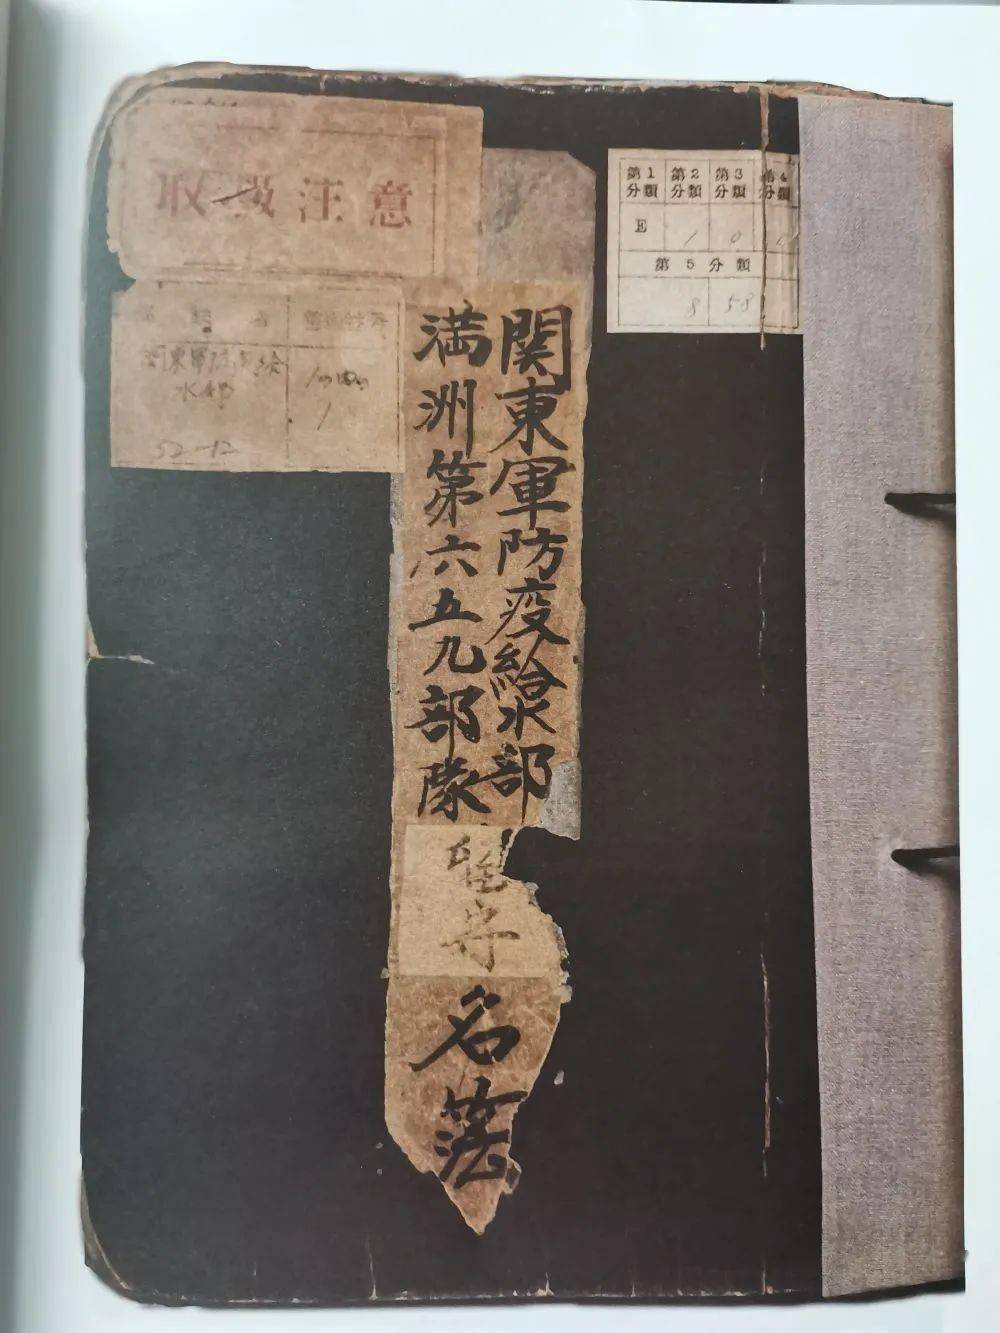 取扱注意
第1分類 第2分類 第3分類 第4分類
E 1 0 0
第5分類
8 58
関東軍防疫給水部
52-12
関東軍防疫給水部
満洲第六五九部隊
留守
名簿